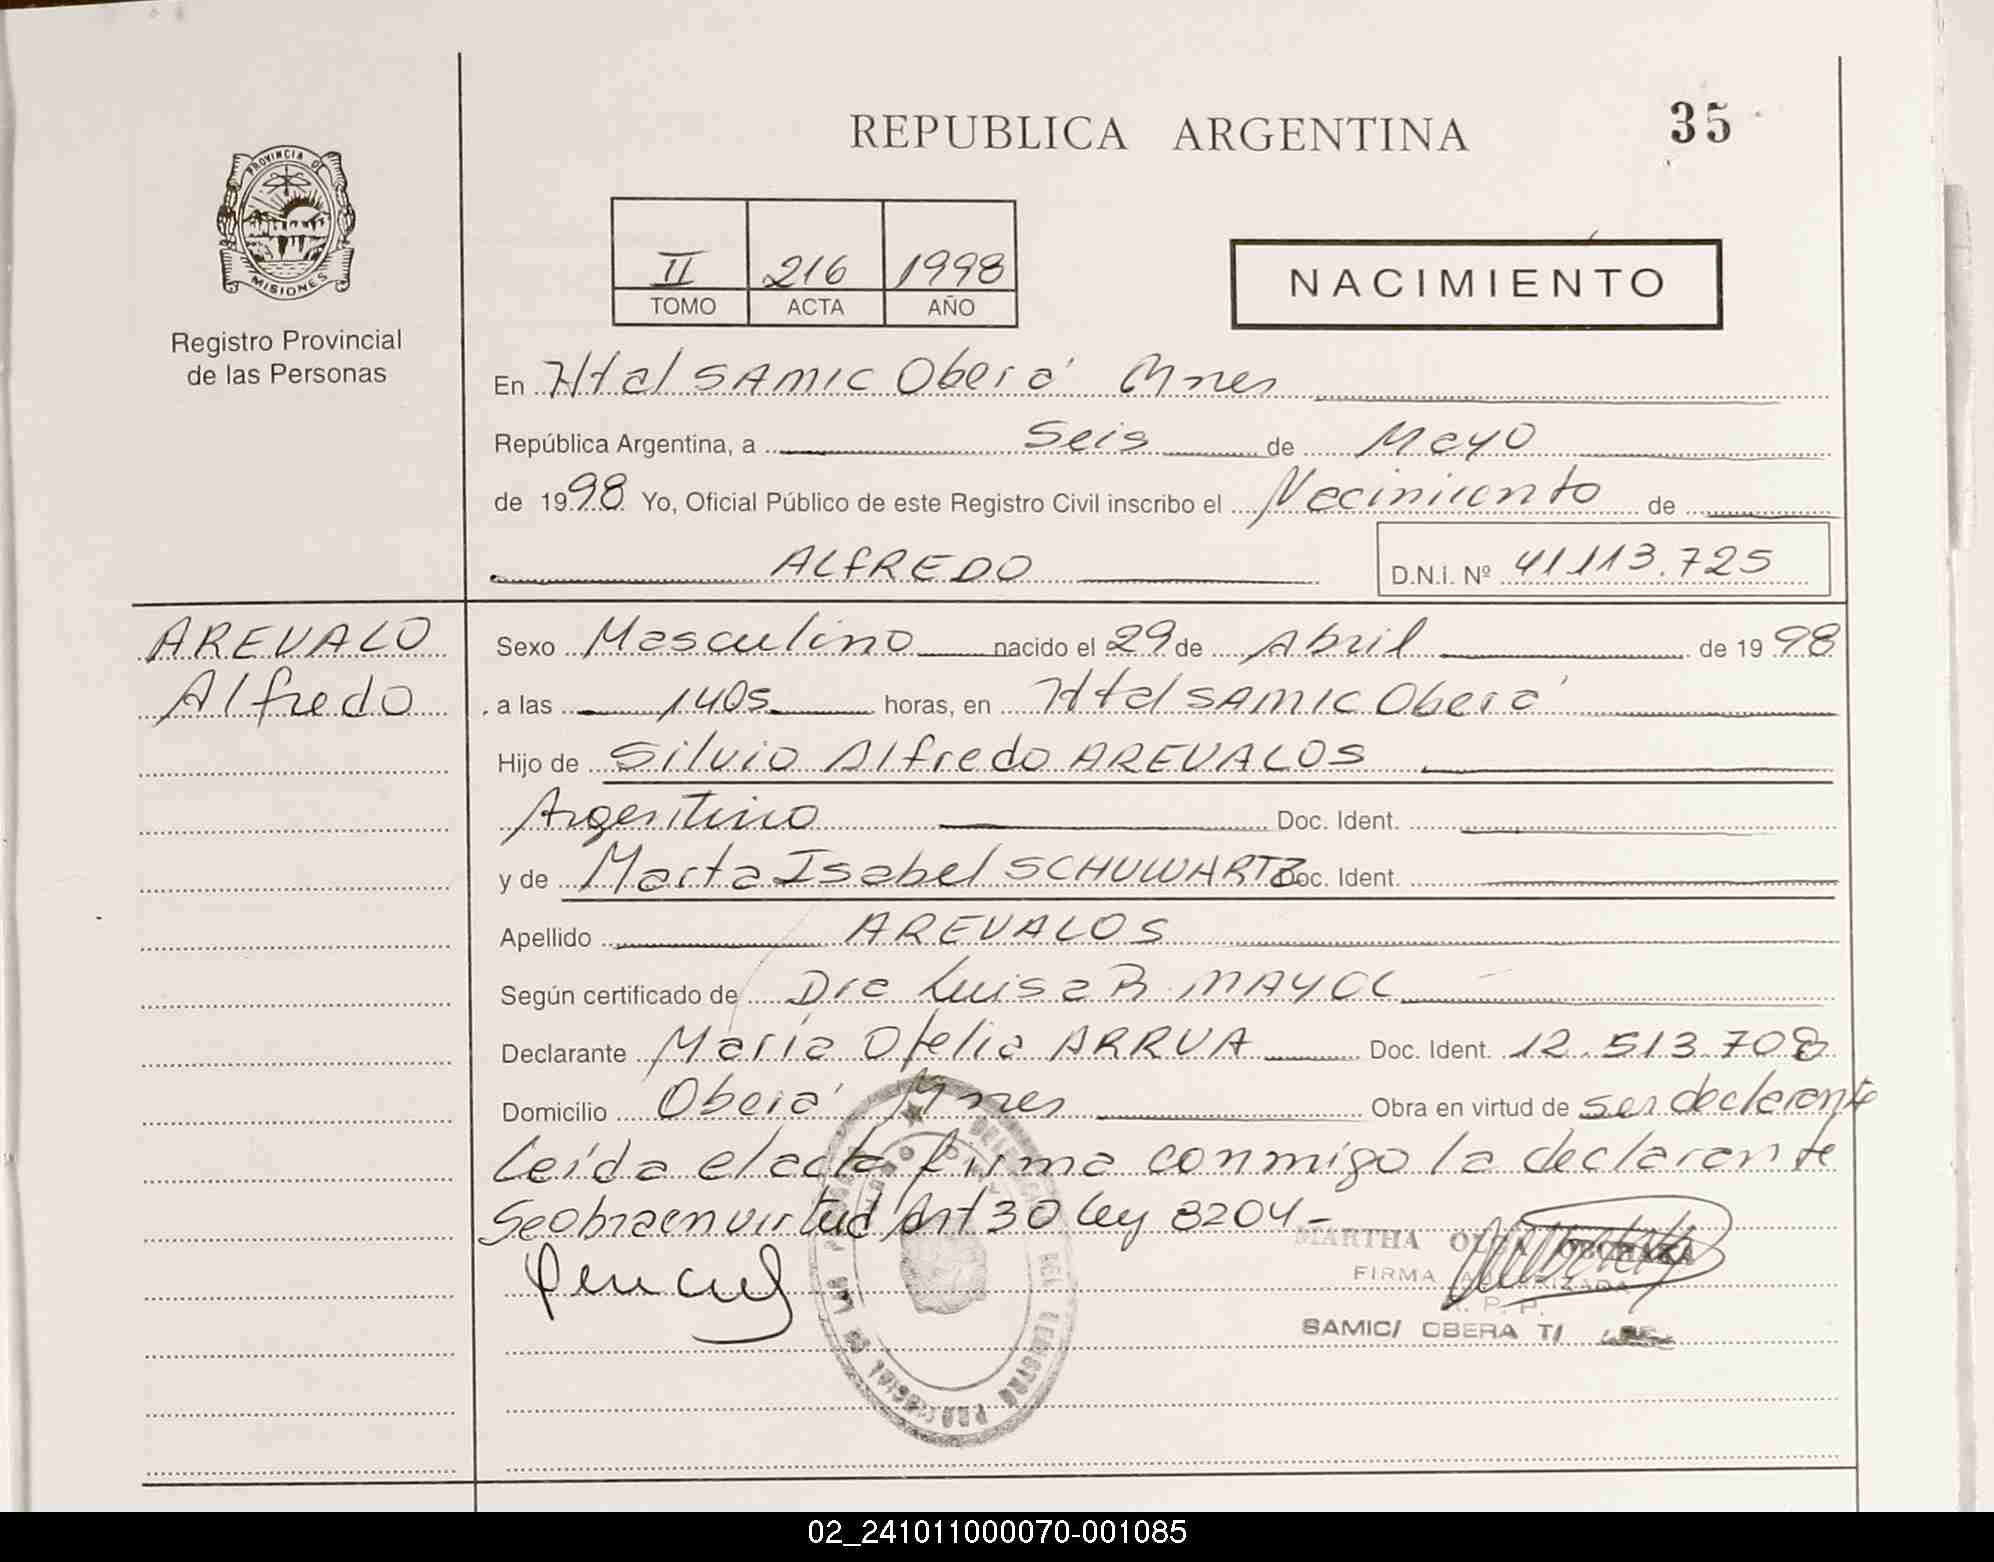 REPUBLICA ARGENTINA
35
PROVINCIA DE MISIONES
Registro Provincial
de las Personas
II 216 1998
TOMO ACTA AÑO
NACIMIENTO
En Htal SAMIC Oberá Mnes
República Argentina, a Seis de Mayo
de 1998 Yo, Oficial Público de este Registro Civil inscribo el Nacimiento de
ALFREDO D.N.I. Nº 41.113.725
AREVALO
Alfredo
Sexo Masculino nacido el 29 de Abril de 1998
a las 1405 horas, en Htal SAMIC Oberá
Hijo de Silvio Alfredo AREVALOS
Argentino Doc. Ident.
y de Marta Isabel SCHUWARTZ Doc. Ident.
Apellido AREVALOS
Según certificado de Dra Luisa B. MAYOL
Declarante María Ofelia ARRUA Doc. Ident. 12.513.708
Domicilio Oberá Mnes Obra en virtud de ser declarante
Leída el acta firma conmigo la declarante
Se obra en virtud Art 30 Ley 8204-
MARTHA OLGA
FIRMA AUTORIZADA
R. P. P.
SAMIC/ OBERA T/
02_241011000070-001085